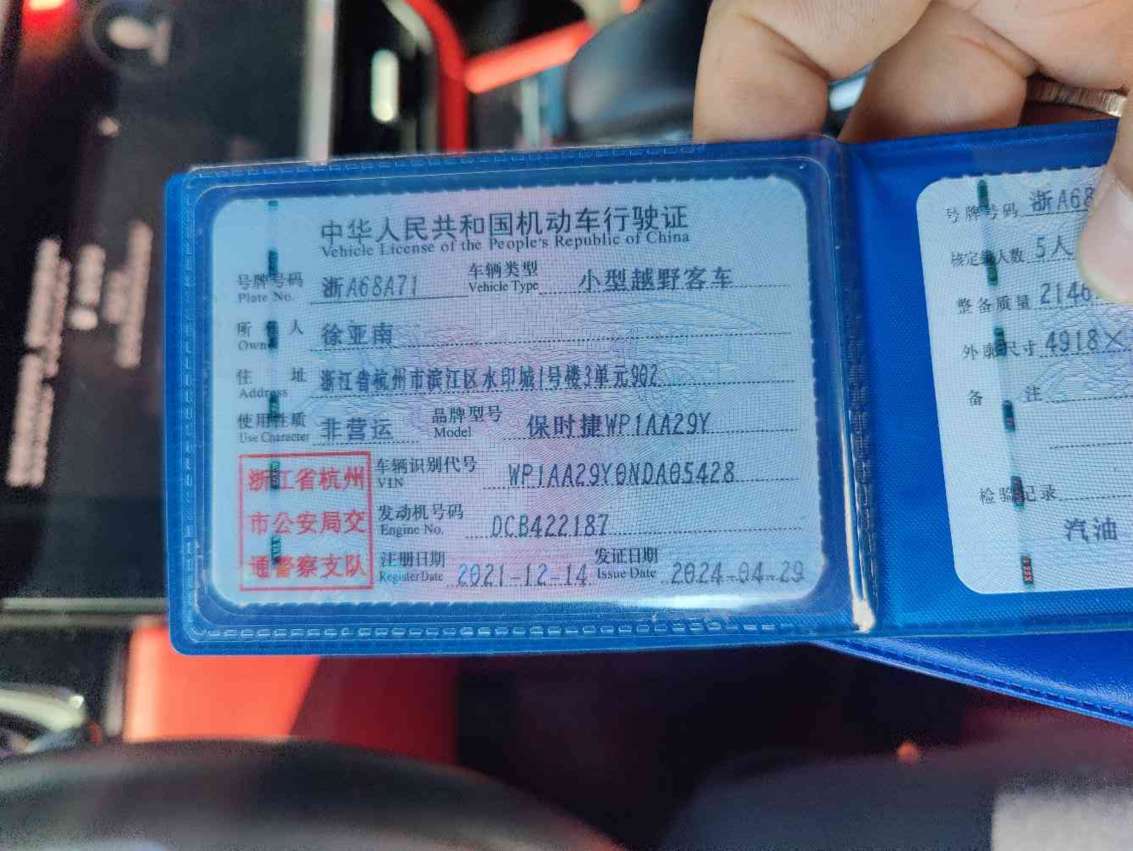 中华人民共和国机动车行驶证
Vehicle License of the People's Republic of China
号牌号码 浙A68A71 车辆类型 小型越野客车
Plate No. Vehicle Type
所有人 徐亚南
Owner
住址 浙江省杭州市滨江区水印城1号楼3单元902
Address
使用性质 非营运 品牌型号 保时捷WP1AA29Y
Use Character Model
浙江省杭州
市公安局交
通警察支队
车辆识别代号 WP1AA29Y0NDA05428
VIN
发动机号码 DCB422187
Engine No.
注册日期 2021-12-14 发证日期 2024-04-29
Register Date Issue Date
号牌号码 浙A68
核定载人数 5人
整备质量 2146
外廓尺寸 4918×
备注
检验记录
汽油